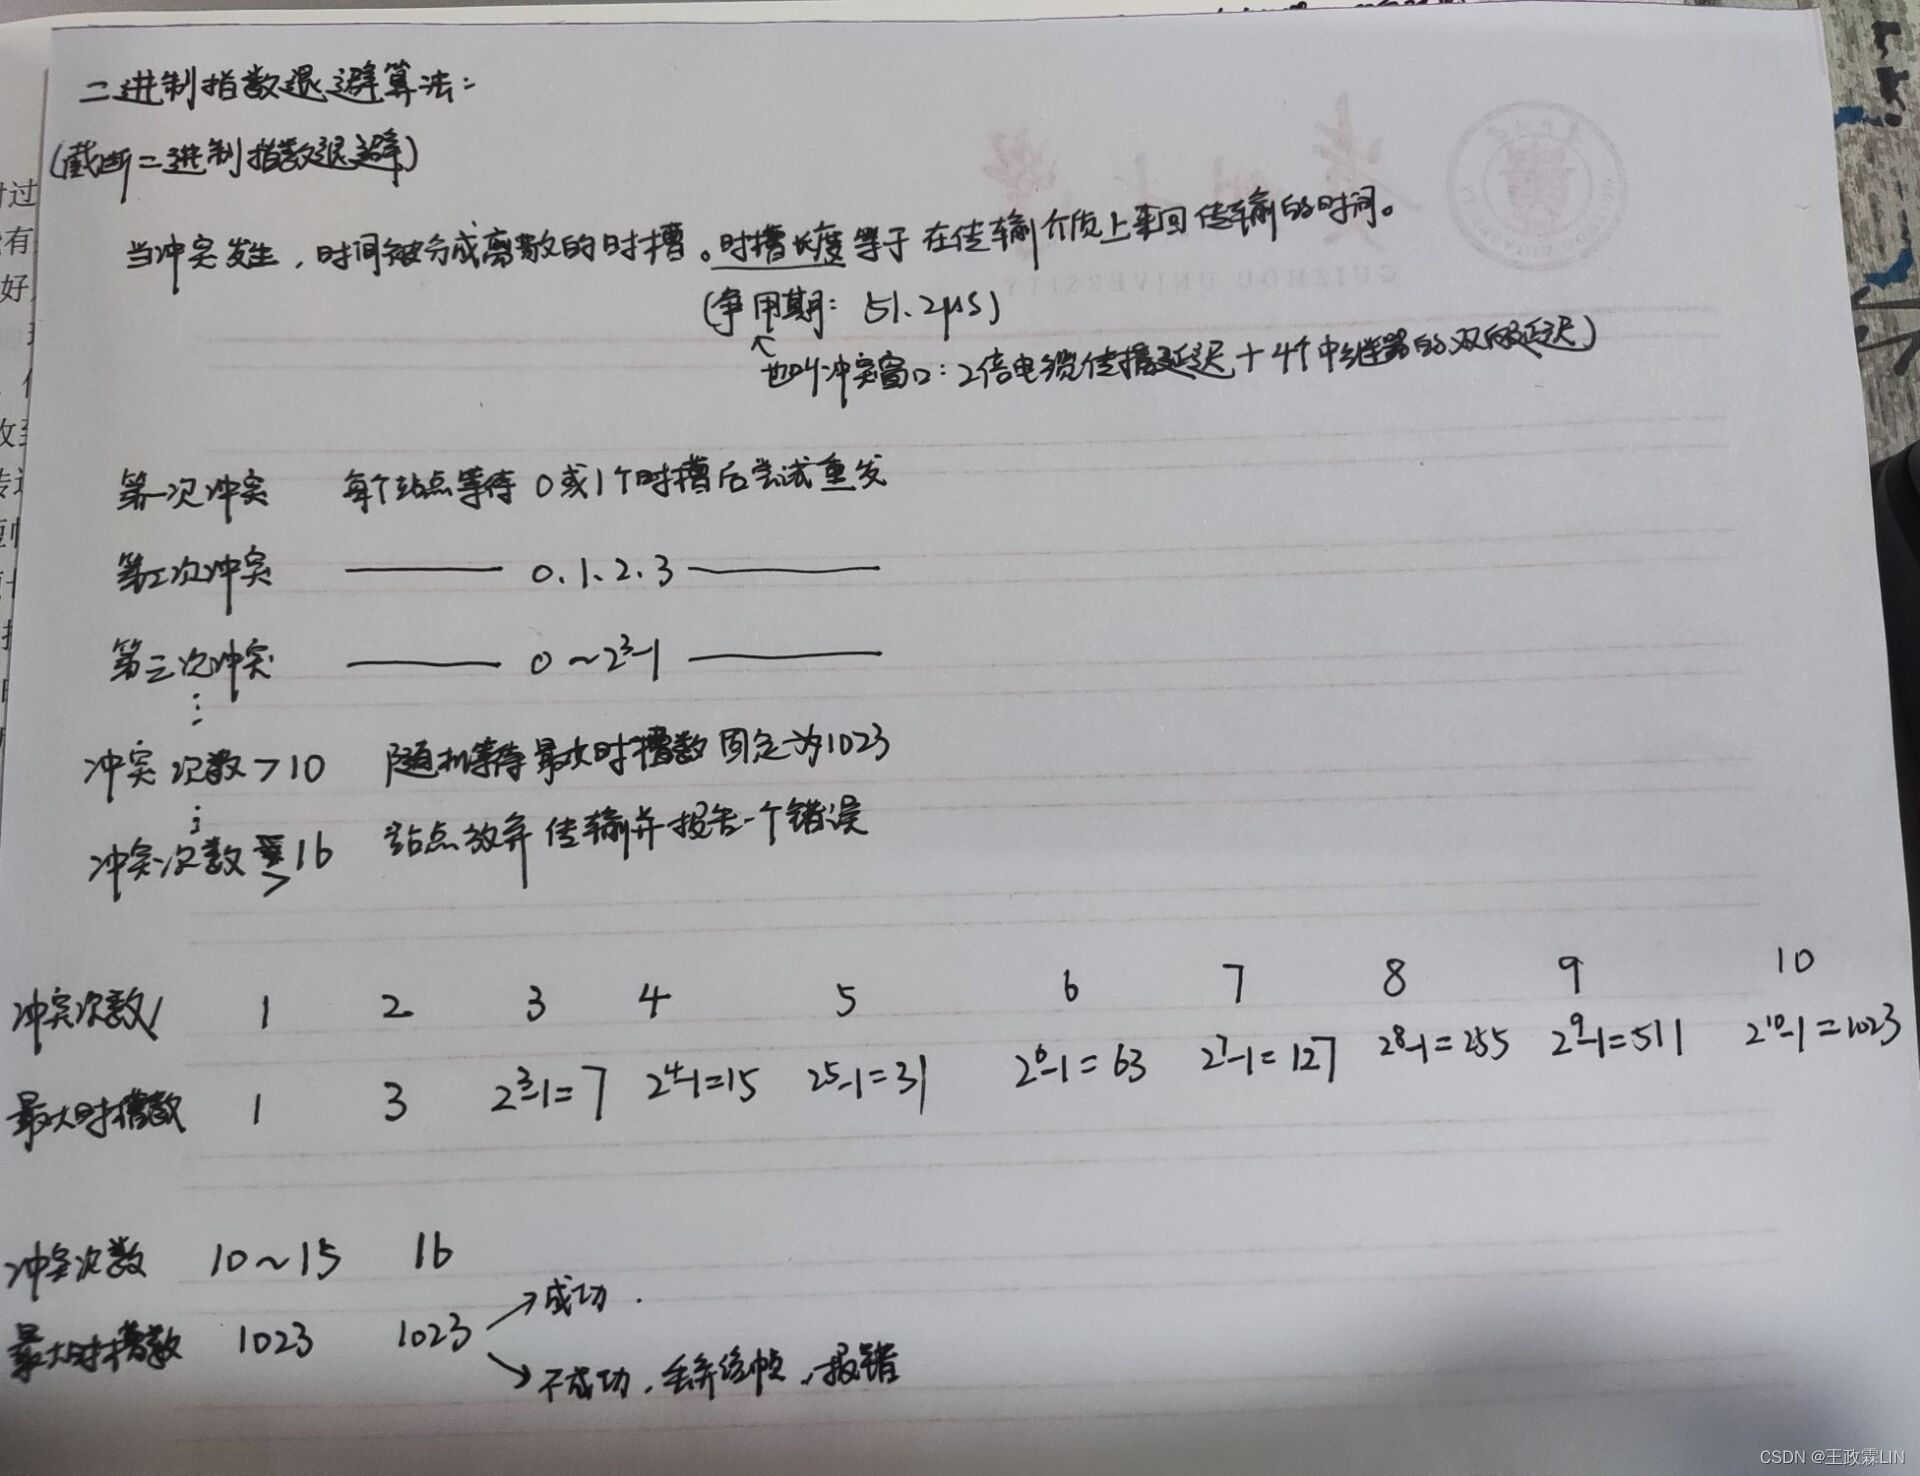 二进制指数退避算法：
(截断二进制指数退避)
当冲突发生，时间被分成离散的时槽。时槽长度等于在传输介质上来回传输的时间。
(争用期：51.2μs)
也叫冲突窗口：2倍电缆传播延迟＋4个中继器的双向延迟)
第一次冲突 每个站点等待 0或1个时槽后尝试重发
第二次冲突 —— 0、1、2、3 ——
第三次冲突 —— 0～2³-1 ——
⋮
冲突次数>10 随机等待最大时槽数固定为1023
⋮
冲突次数>16 站点放弃传输并报告一个错误
冲突次数 1 2 3 4 5 6 7 8 9 10
最大时槽数 1 3 2³-1=7 2⁴-1=15 2⁵-1=31 2⁶-1=63 2⁷-1=127 2⁸-1=255 2⁹-1=511 2¹⁰-1=1023
冲突次数 10～15 16
最大时槽数 1023 1023 →成功.
→不成功，丢弃该帧，报错
GUIZHOU UNIVERSITY
CSDN @王政霖LIN